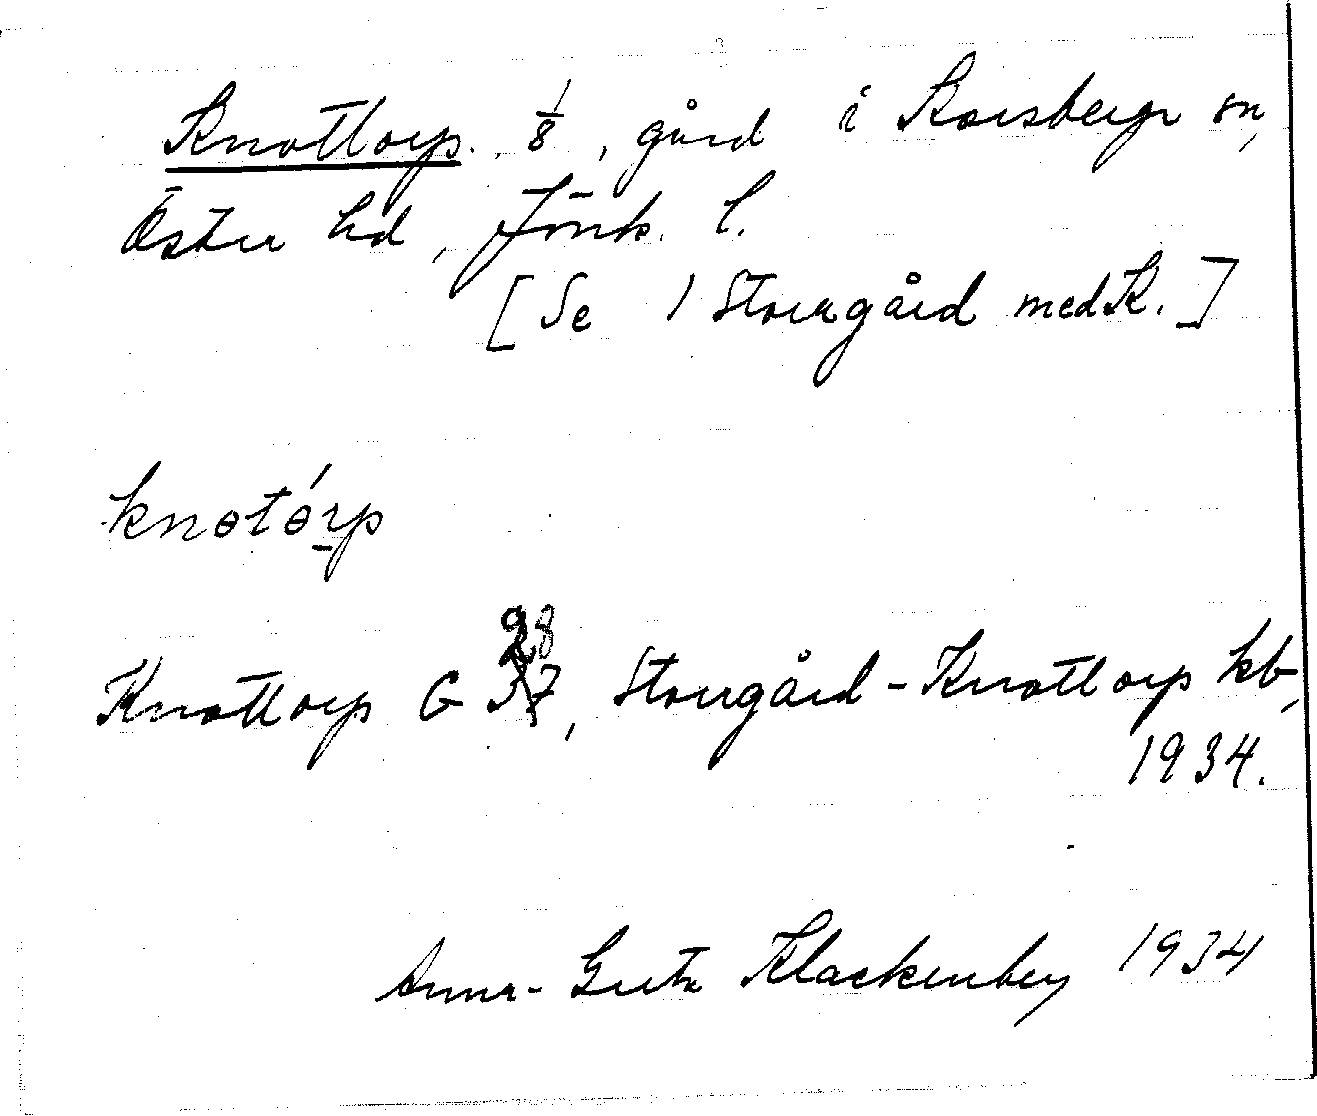 Knottorp. 1/8, gård i Korsberga sn,
Öster hd, Jönk. l.
[Se 1 Storrgård med K.]
knɵtɵ́rp
Knottorp G 28, Storrgård - Knottorp kb,
1934.
Anna-Greta Klackenberg 1934